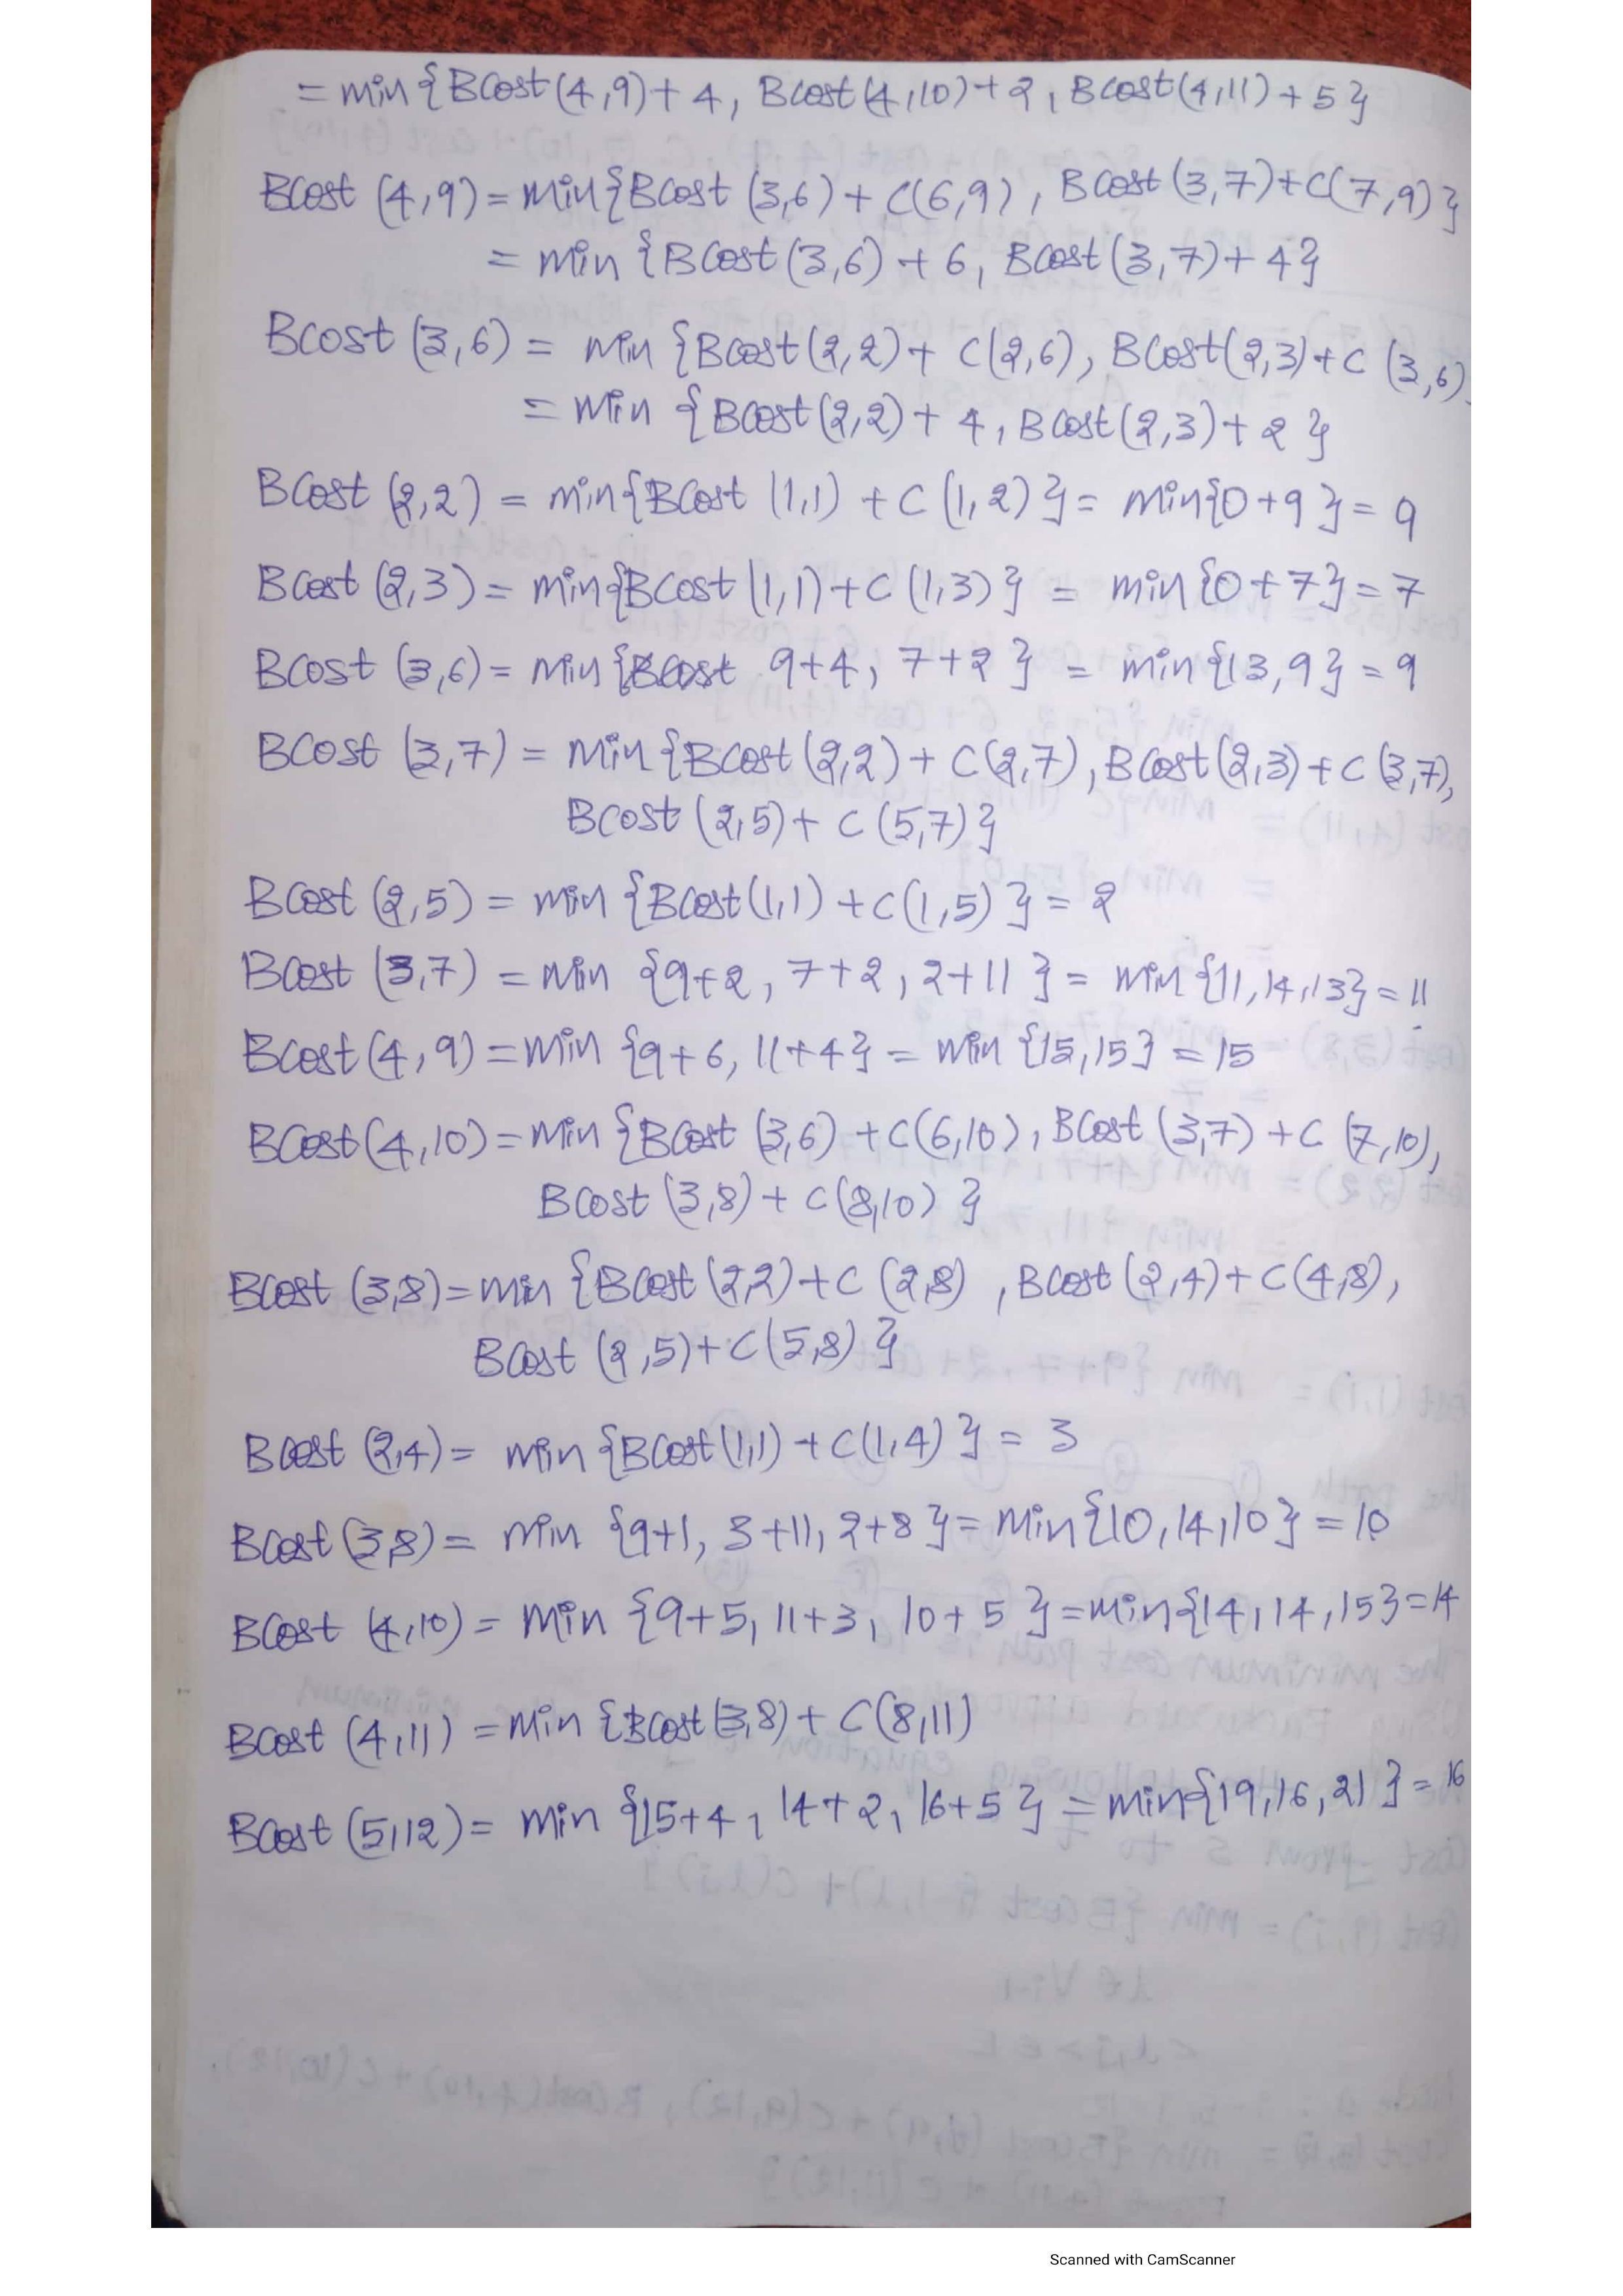 = min{BCost(4,9)+4, BCost(4,10)+2, BCost(4,11)+5}
BCost (4,9) = min{BCost (3,6)+C(6,9), BCost (3,7)+C(7,9)}
= min {BCost(3,6)+6, BCost(3,7)+4}
BCost (3,6) = min {BCost(2,2)+ C(2,6), BCost(2,3)+C (3,6)
= min {BCost(2,2)+ 4, BCost(2,3)+2 }
BCost (2,2) = min{BCost (1,1) + C (1,2) } = min{0+9 } = 9
BCost (2,3) = min{BCost (1,1)+C (1,3) } = min {0+7} = 7
BCost (3,6) = min {BCost 9+4, 7+2 } = min {13,9} = 9
BCost (3,7) = min {BCost (2,2) + C(2,7), BCost(2,3)+C (3,7),
BCost (2,5)+ C (5,7) }
BCost (2,5) = min {BCost(1,1) +C(1,5) } = 2
BCost (3,7) = min {9+2, 7+2, 2+11 } = min {11,14,13} = 11
BCost (4,9) = min {9+6, 11+4} = min {15,15} = 15
BCost(4,10) = min {BCost (3,6) +C(6,10), BCost (3,7) +C (7,10),
BCost (3,8)+ C(8,10) }
BCost (3,8) = min {BCost (2,2)+C (2,8) , BCost (2,4)+C(4,8),
BCost (2,5)+C(5,8) }
BCost (2,4) = min {BCost(1,1) +C(1,4) } = 3
BCost (3,8) = min {9+1, 3+11, 2+8 } = min{10,14,10} = 10
BCost (4,10) = min {9+5, 11+3, 10+5 } = min{14,14,15} = 14
BCost (4,11) = min {BCost(3,8)+ C(8,11)
BCost (5,12) = min {15+4, 14+2, 16+5 } = min{19,16,21} = 16
Scanned with CamScanner